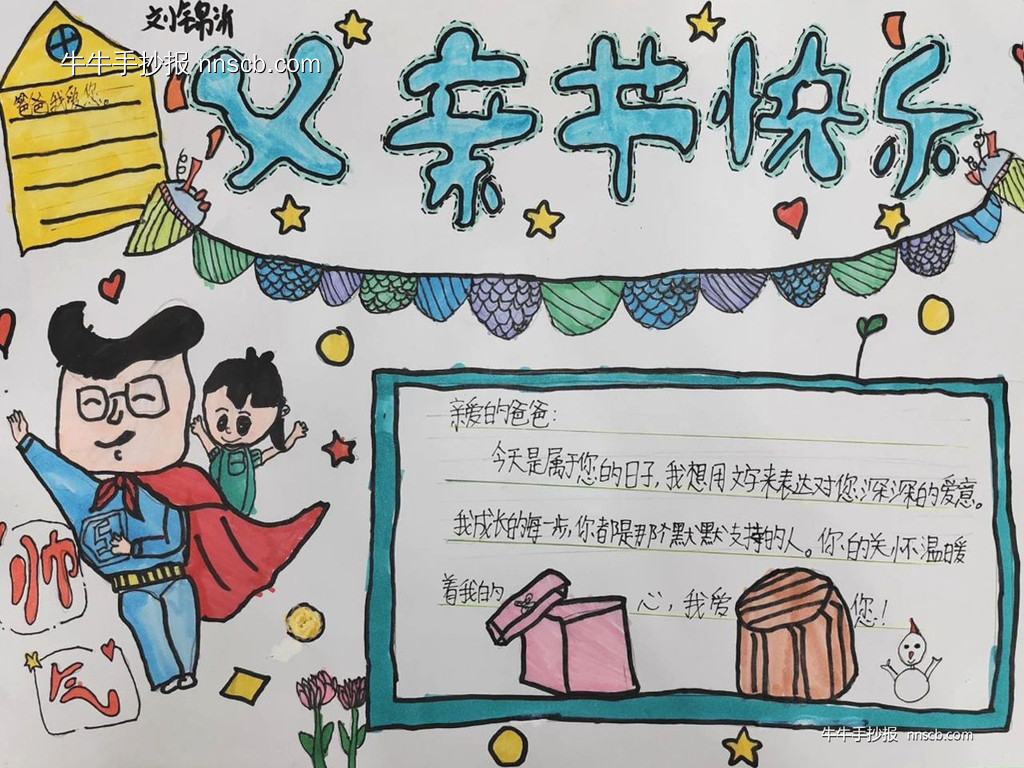 刘锦沂
牛牛手抄报 nnscb.com
爸爸我爱您。
父亲节快乐
亲爱的爸爸:
今天是属于您的日子,我想用文字来表达对您深深的爱意。
我成长的每一步,你都是那个默默支持的人。你的关怀温暖
着我的心,我爱您!
帅
气
牛牛手抄报 nnscb.com